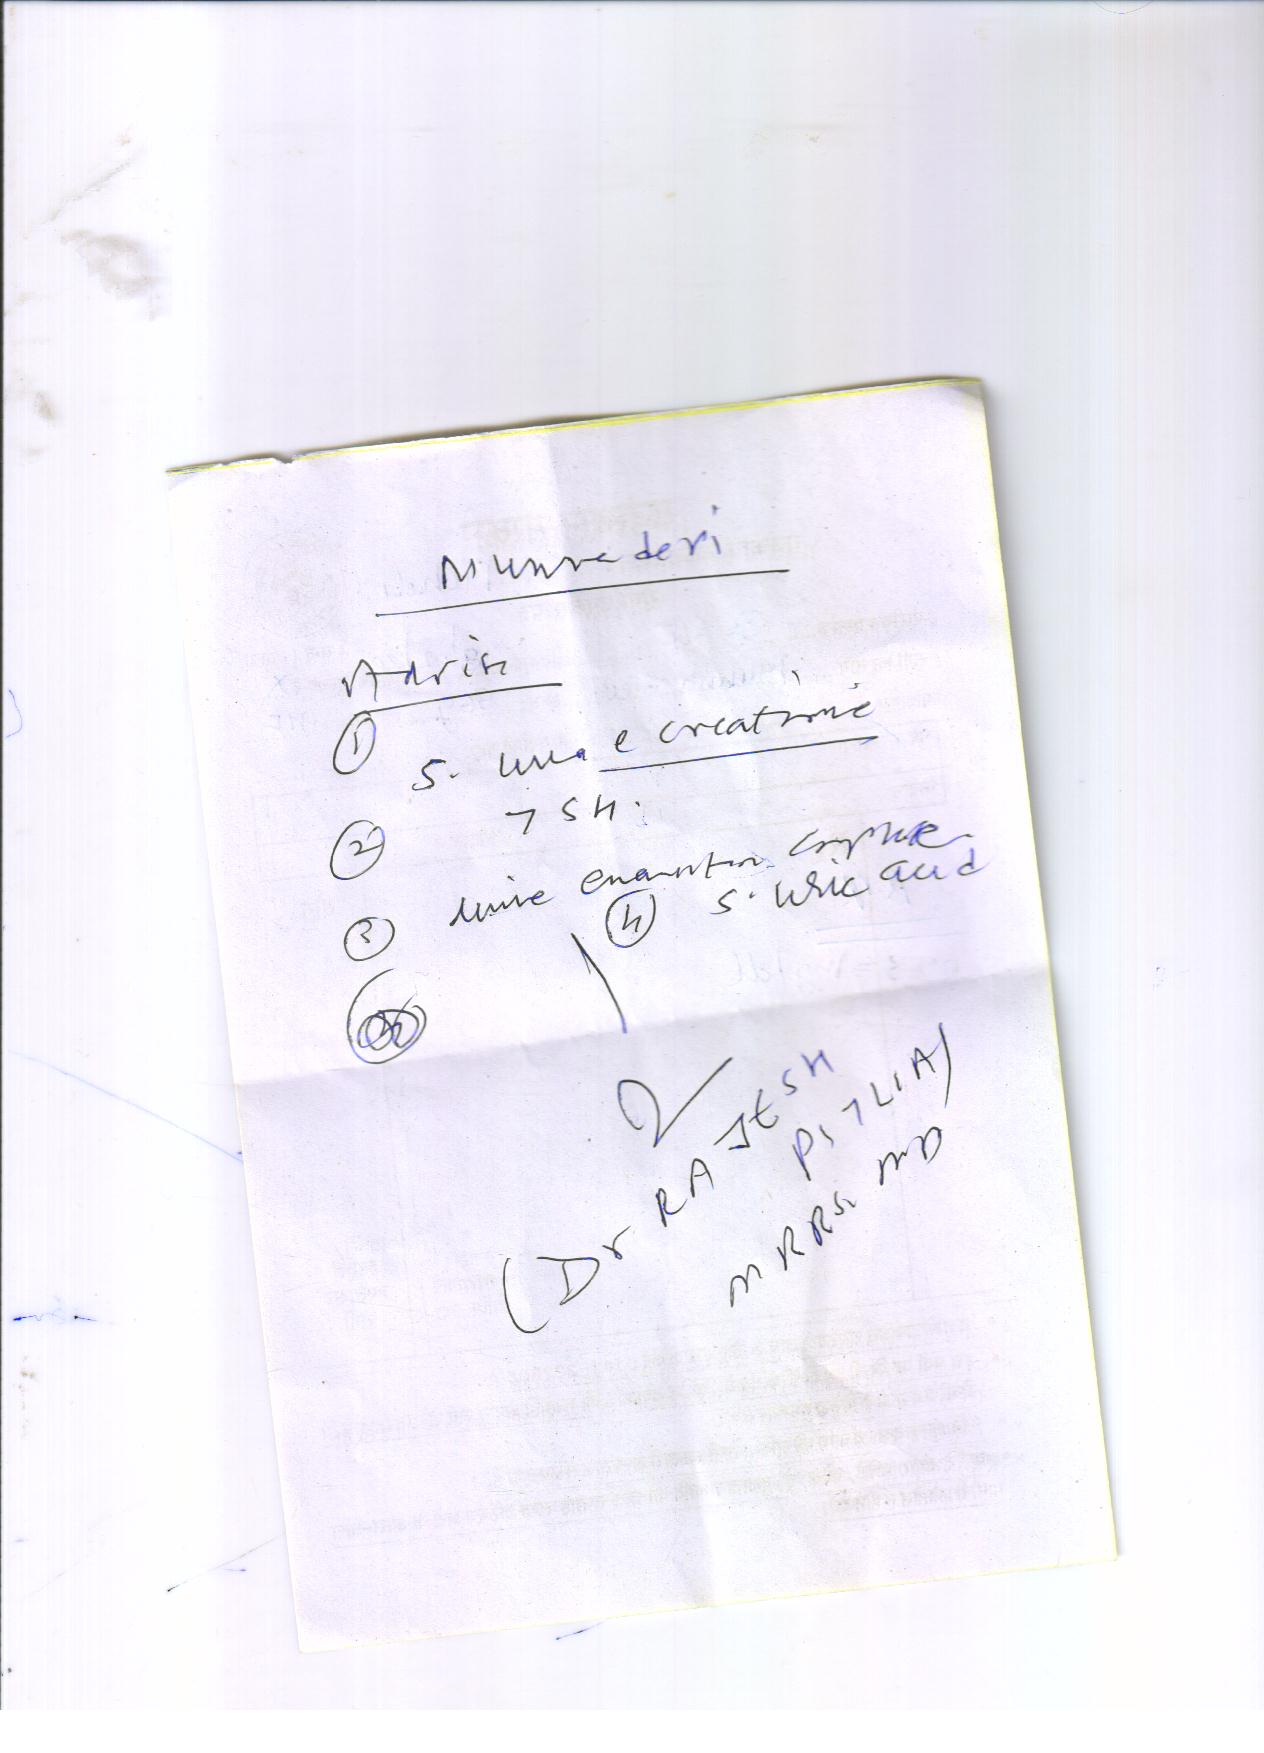 Munna devi
Advise
① S. urea e creatinine
② TSH.
③ urine examination complete
④ S. uric acid
(Dr RAJESH
PITLIA)
MBBS, MD